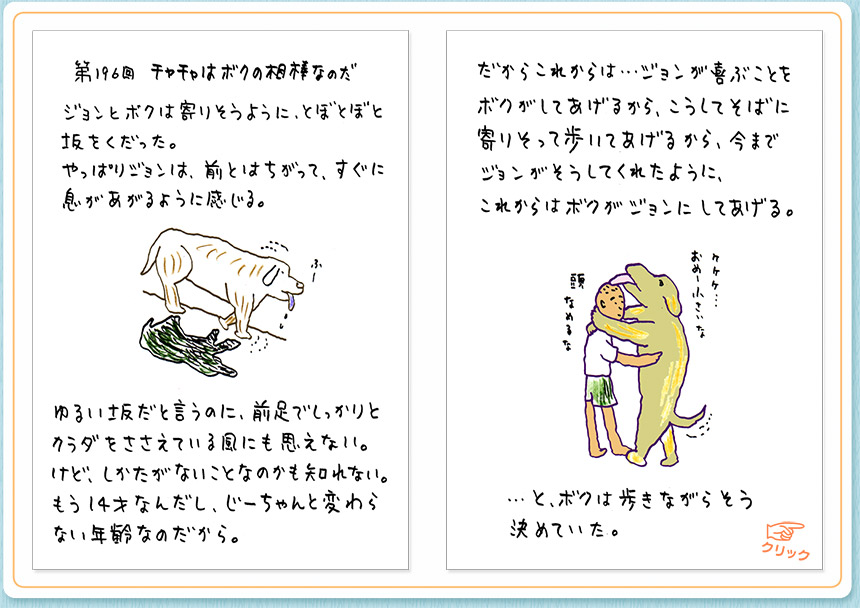 第196回 チャチャはボクの相棒なのだ
ジョンとボクは寄りそうように、とぼとぼと
坂をくだった。
やっぱりジョンは、前とはちがって、すぐに
息があがるように感じる。
ふー
ゆるい坂だと言うのに、前足でしっかりと
カラダをささえている風にも思えない。
けど、しかたがないことなのかも知れない。
もう14才なんだし、じーちゃんと変わら
ない年齢なのだから。
だからこれからは…ジョンが喜ぶことを
ボクがしてあげるから、こうしてそばに
寄りそって歩いてあげるから、今まで
ジョンがそうしてくれたように、
これからはボクがジョンにしてあげる。
ケケケ…
おめー小さいな
頭
なめるな
…と、ボクは歩きながらそう
決めていた。
クリック